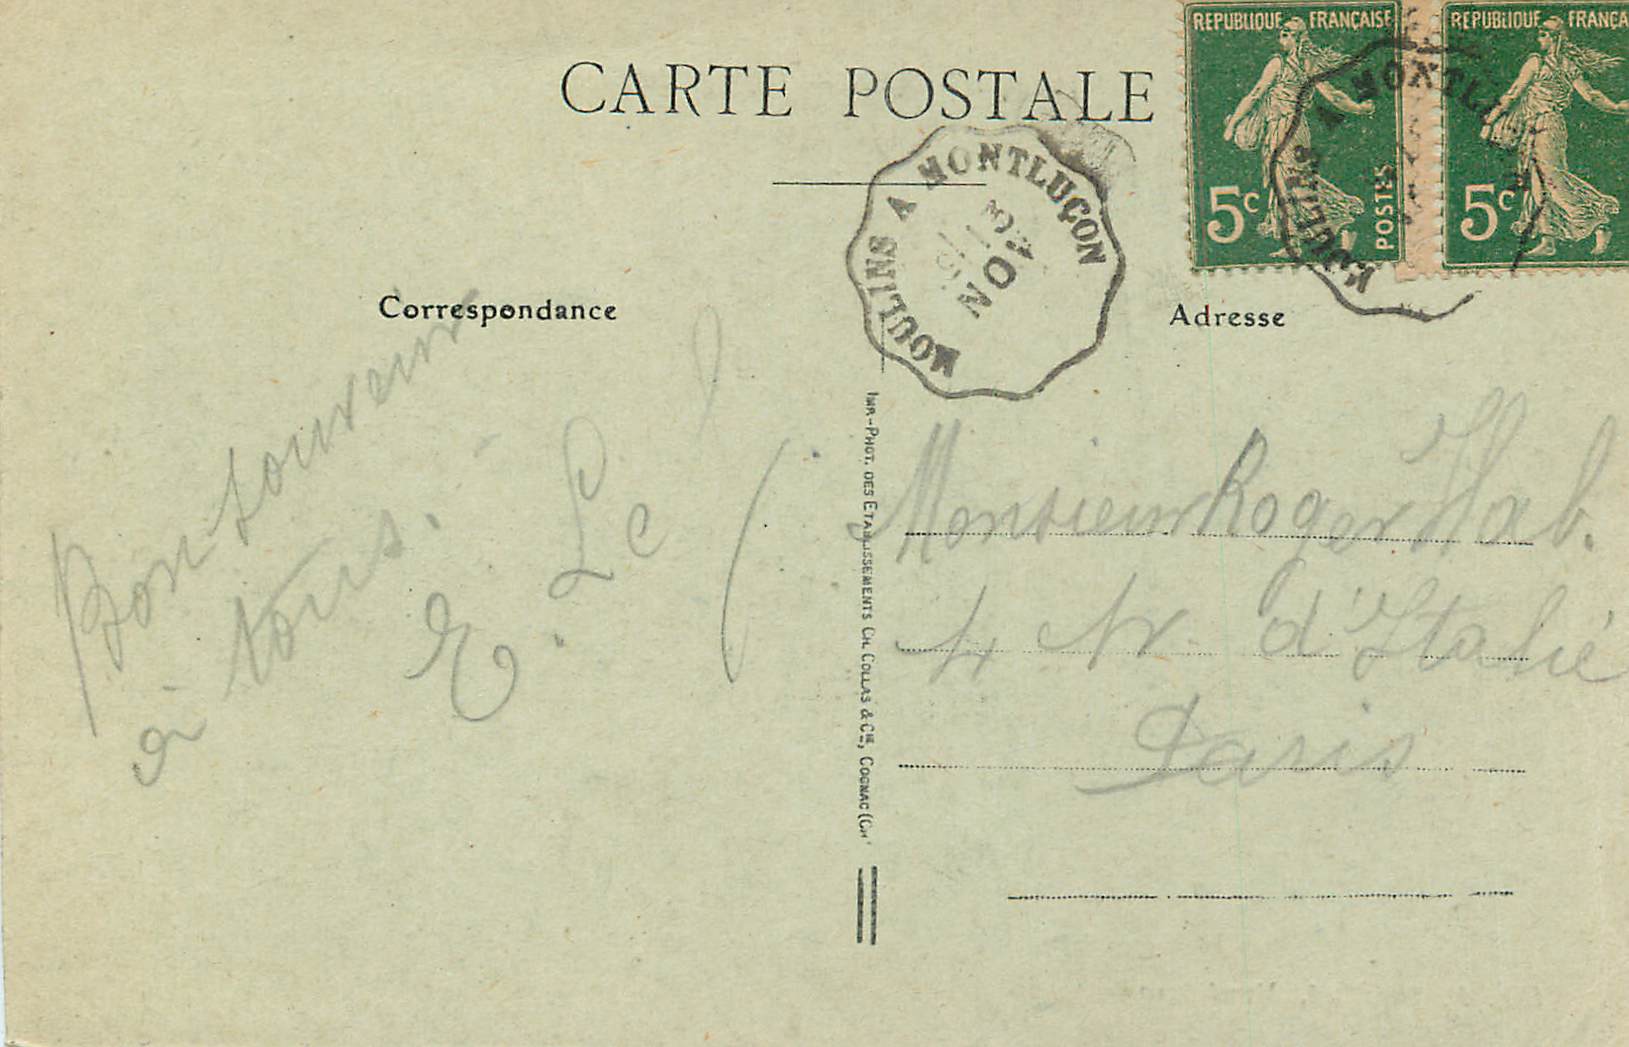 CARTE POSTALE
REPUBLIQUE FRANÇAISE
5c
POSTES
REPUBLIQUE FRANÇA
5c
MOULINS A MONTLUÇON
NOV
MOULINS A MONTLUÇON
Correspondance
Adresse
Bon souvenir
à tous.
E. Le
Monsieur Roger Hab.
4 Av. d'Italie
Paris
IMP.-PHOT. DES ETABLISSEMENTS CH. COLLAS & CIE, COGNAC (CH